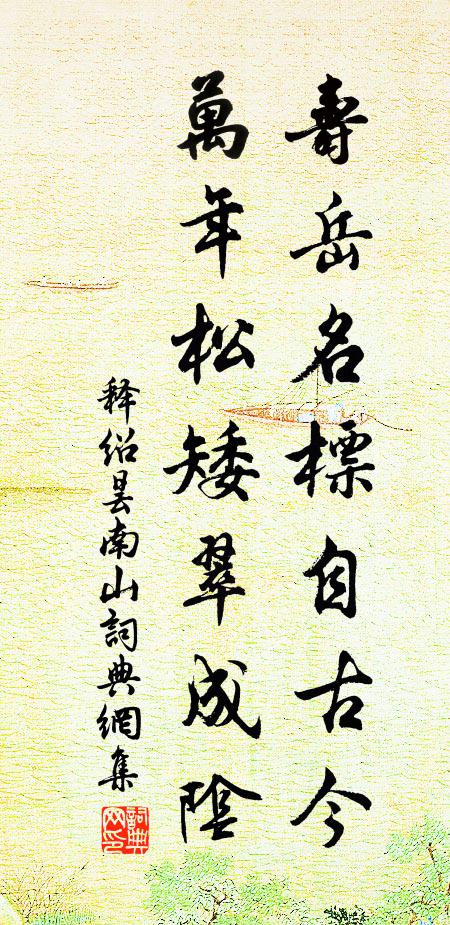 壽岳名標自古今
萬年松矮翠成陰
释紹昙南山詞典網集
詞典网印